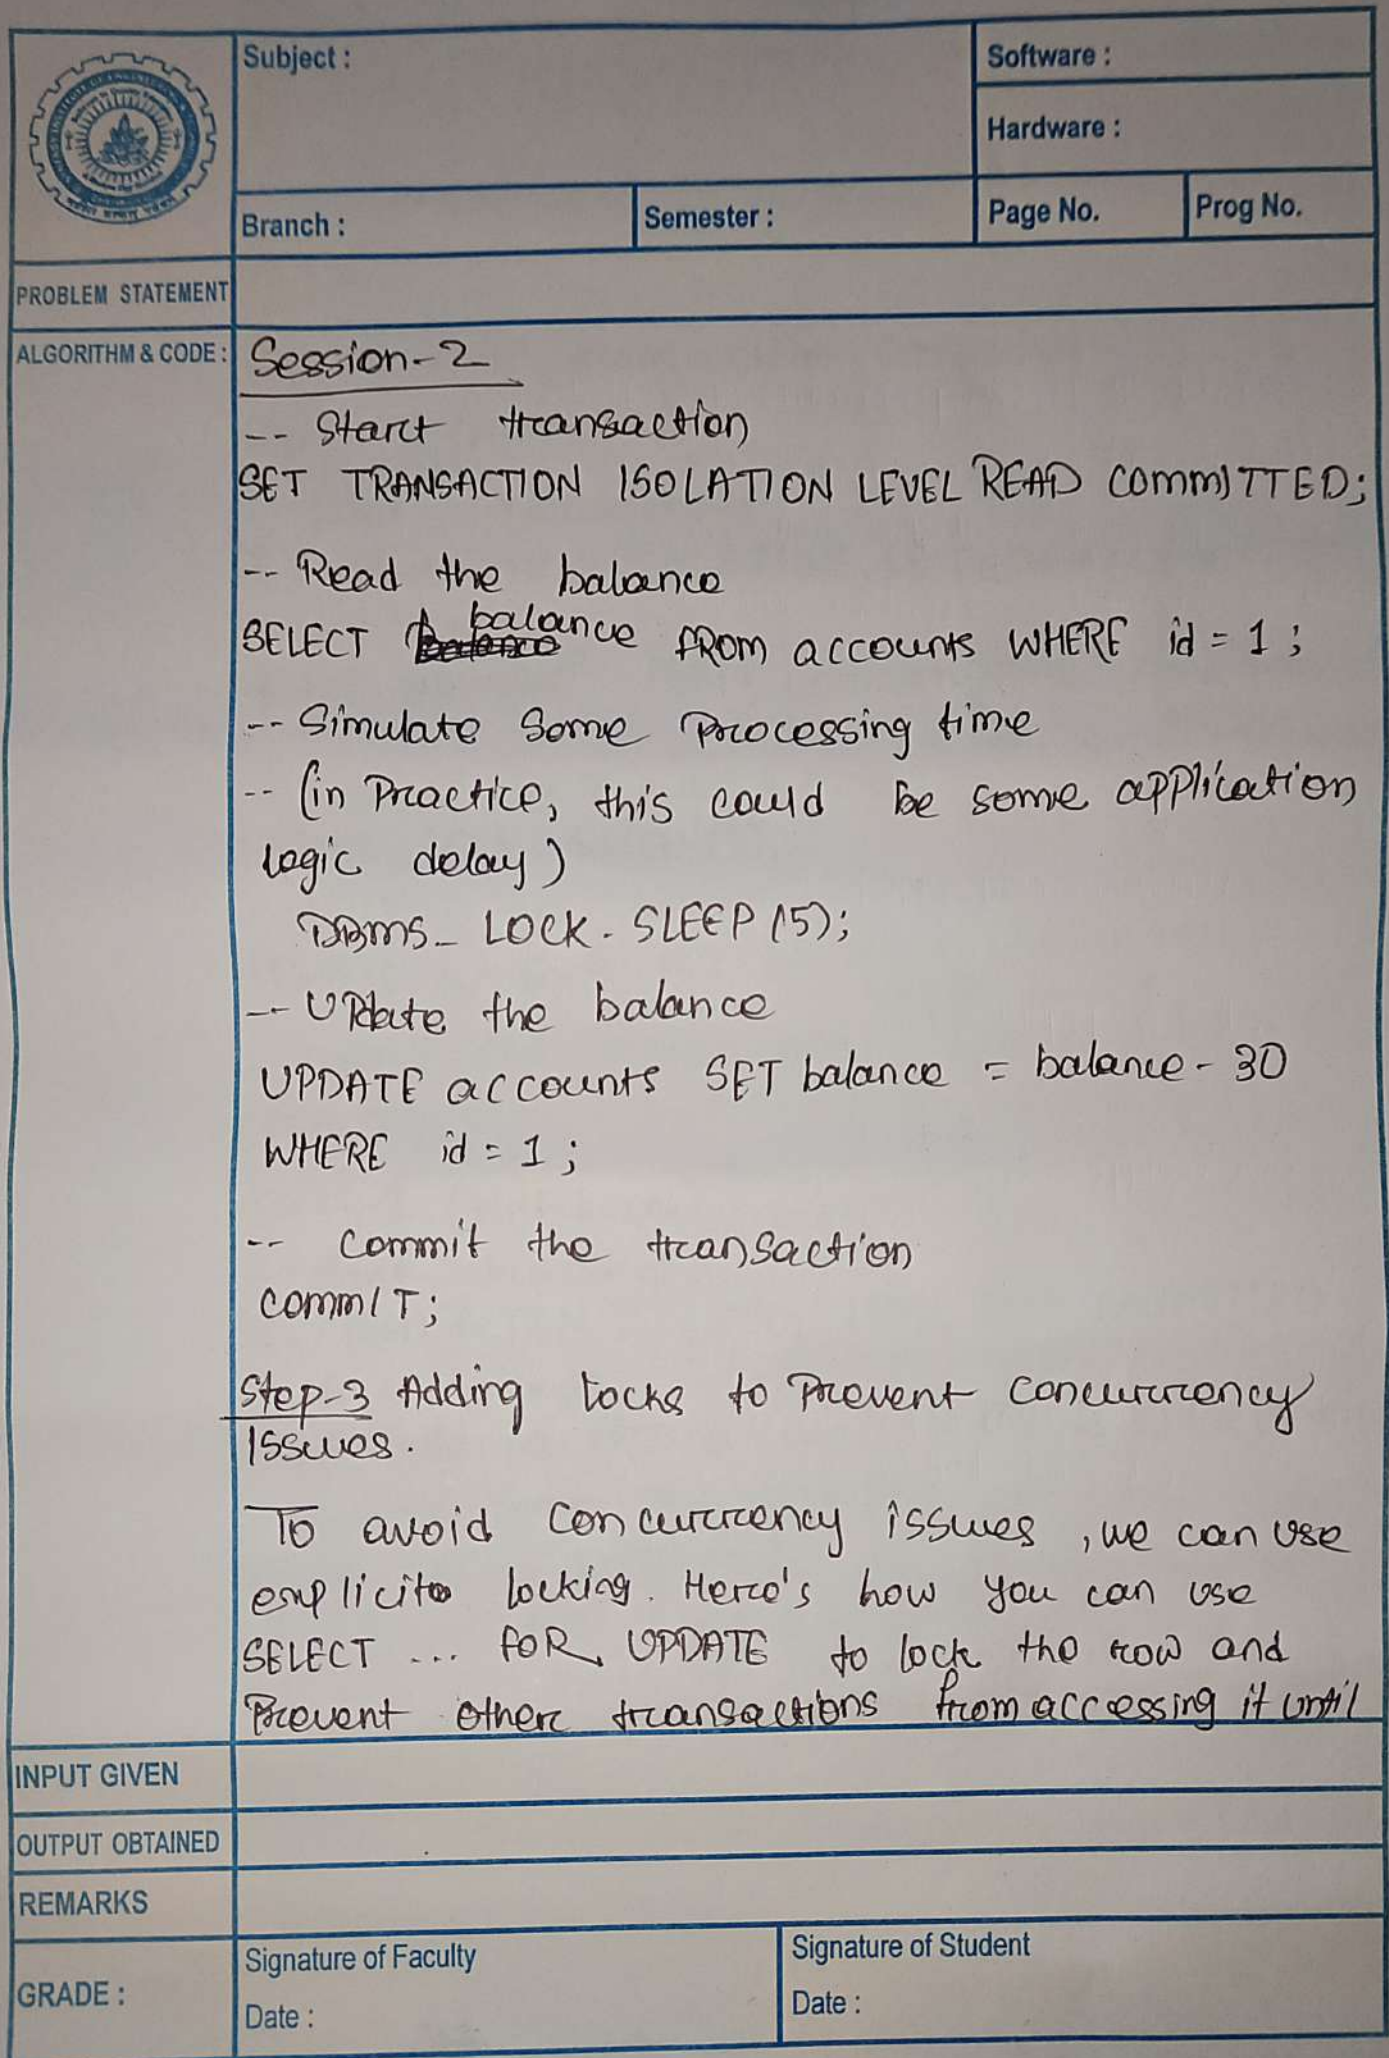 Subject :
Software :
Hardware :
Branch :
Semester :
Page No.
Prog No.
PROBLEM STATEMENT
ALGORITHM & CODE :
Session-2
-- Start transaction
SET TRANSACTION ISOLATION LEVEL READ COMMITTED;
-- Read the balance
SELECT balance FROM accounts WHERE id = 1 ;
-- Simulate Some Processing time
-- (in Practice, this could be some application
logic delay)
DBMS_LOCK.SLEEP(5);
-- UPdate the balance
UPDATE accounts SET balance = balance - 30
WHERE id = 1 ;
-- Commit the transaction
COMMIT;
Step-3 Adding Locks to Prevent Concurrency
Issues.
To avoid Concurrency issues , we can use
explicite locking. Here's how you can use
SELECT ... FOR UPDATE to lock the row and
Prevent other transactions from accessing it until
INPUT GIVEN
OUTPUT OBTAINED
REMARKS
GRADE :
Signature of Faculty
Date :
Signature of Student
Date :